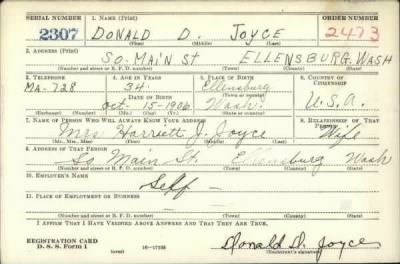 SERIAL NUMBER 1. NAME (Print) ORDER NUMBER
2307 DONALD D. JOYCE 2473
(First) (Middle) (Last)
2. ADDRESS (Print)
SO. MAIN St ELLENSBURG, WASH
(Number and street or R. F. D. number) (Town) (County) (State)
3. TELEPHONE 4. AGE IN YEARS 5. PLACE OF BIRTH 6. COUNTRY OF CITIZENSHIP
MA-728 34 Ellensburg
DATE OF BIRTH (Town or county)
Oct. 15-1906 Wash. U.S.A.
(Exchange) (Number) (Mo.) (Day) (Yr.) (State or country)
7. NAME OF PERSON WHO WILL ALWAYS KNOW YOUR ADDRESS 8. RELATIONSHIP OF THAT PERSON
Mrs Harriett J. Joyce Wife
(Mr., Mrs., Miss) (First) (Middle) (Last)
9. ADDRESS OF THAT PERSON
So Main St. Ellensburg Wash
(Number and street or R. F. D. number) (Town) (County) (State)
10. EMPLOYER'S NAME
Self -
11. PLACE OF EMPLOYMENT OR BUSINESS
(Number and street or R. F. D. number) (Town) (County) (State)
I AFFIRM THAT I HAVE VERIFIED ABOVE ANSWERS AND THAT THEY ARE TRUE.
REGISTRATION CARD
D. S. S. Form 1 (over) 16-17105 Donald D. Joyce
(Registrant's signature)